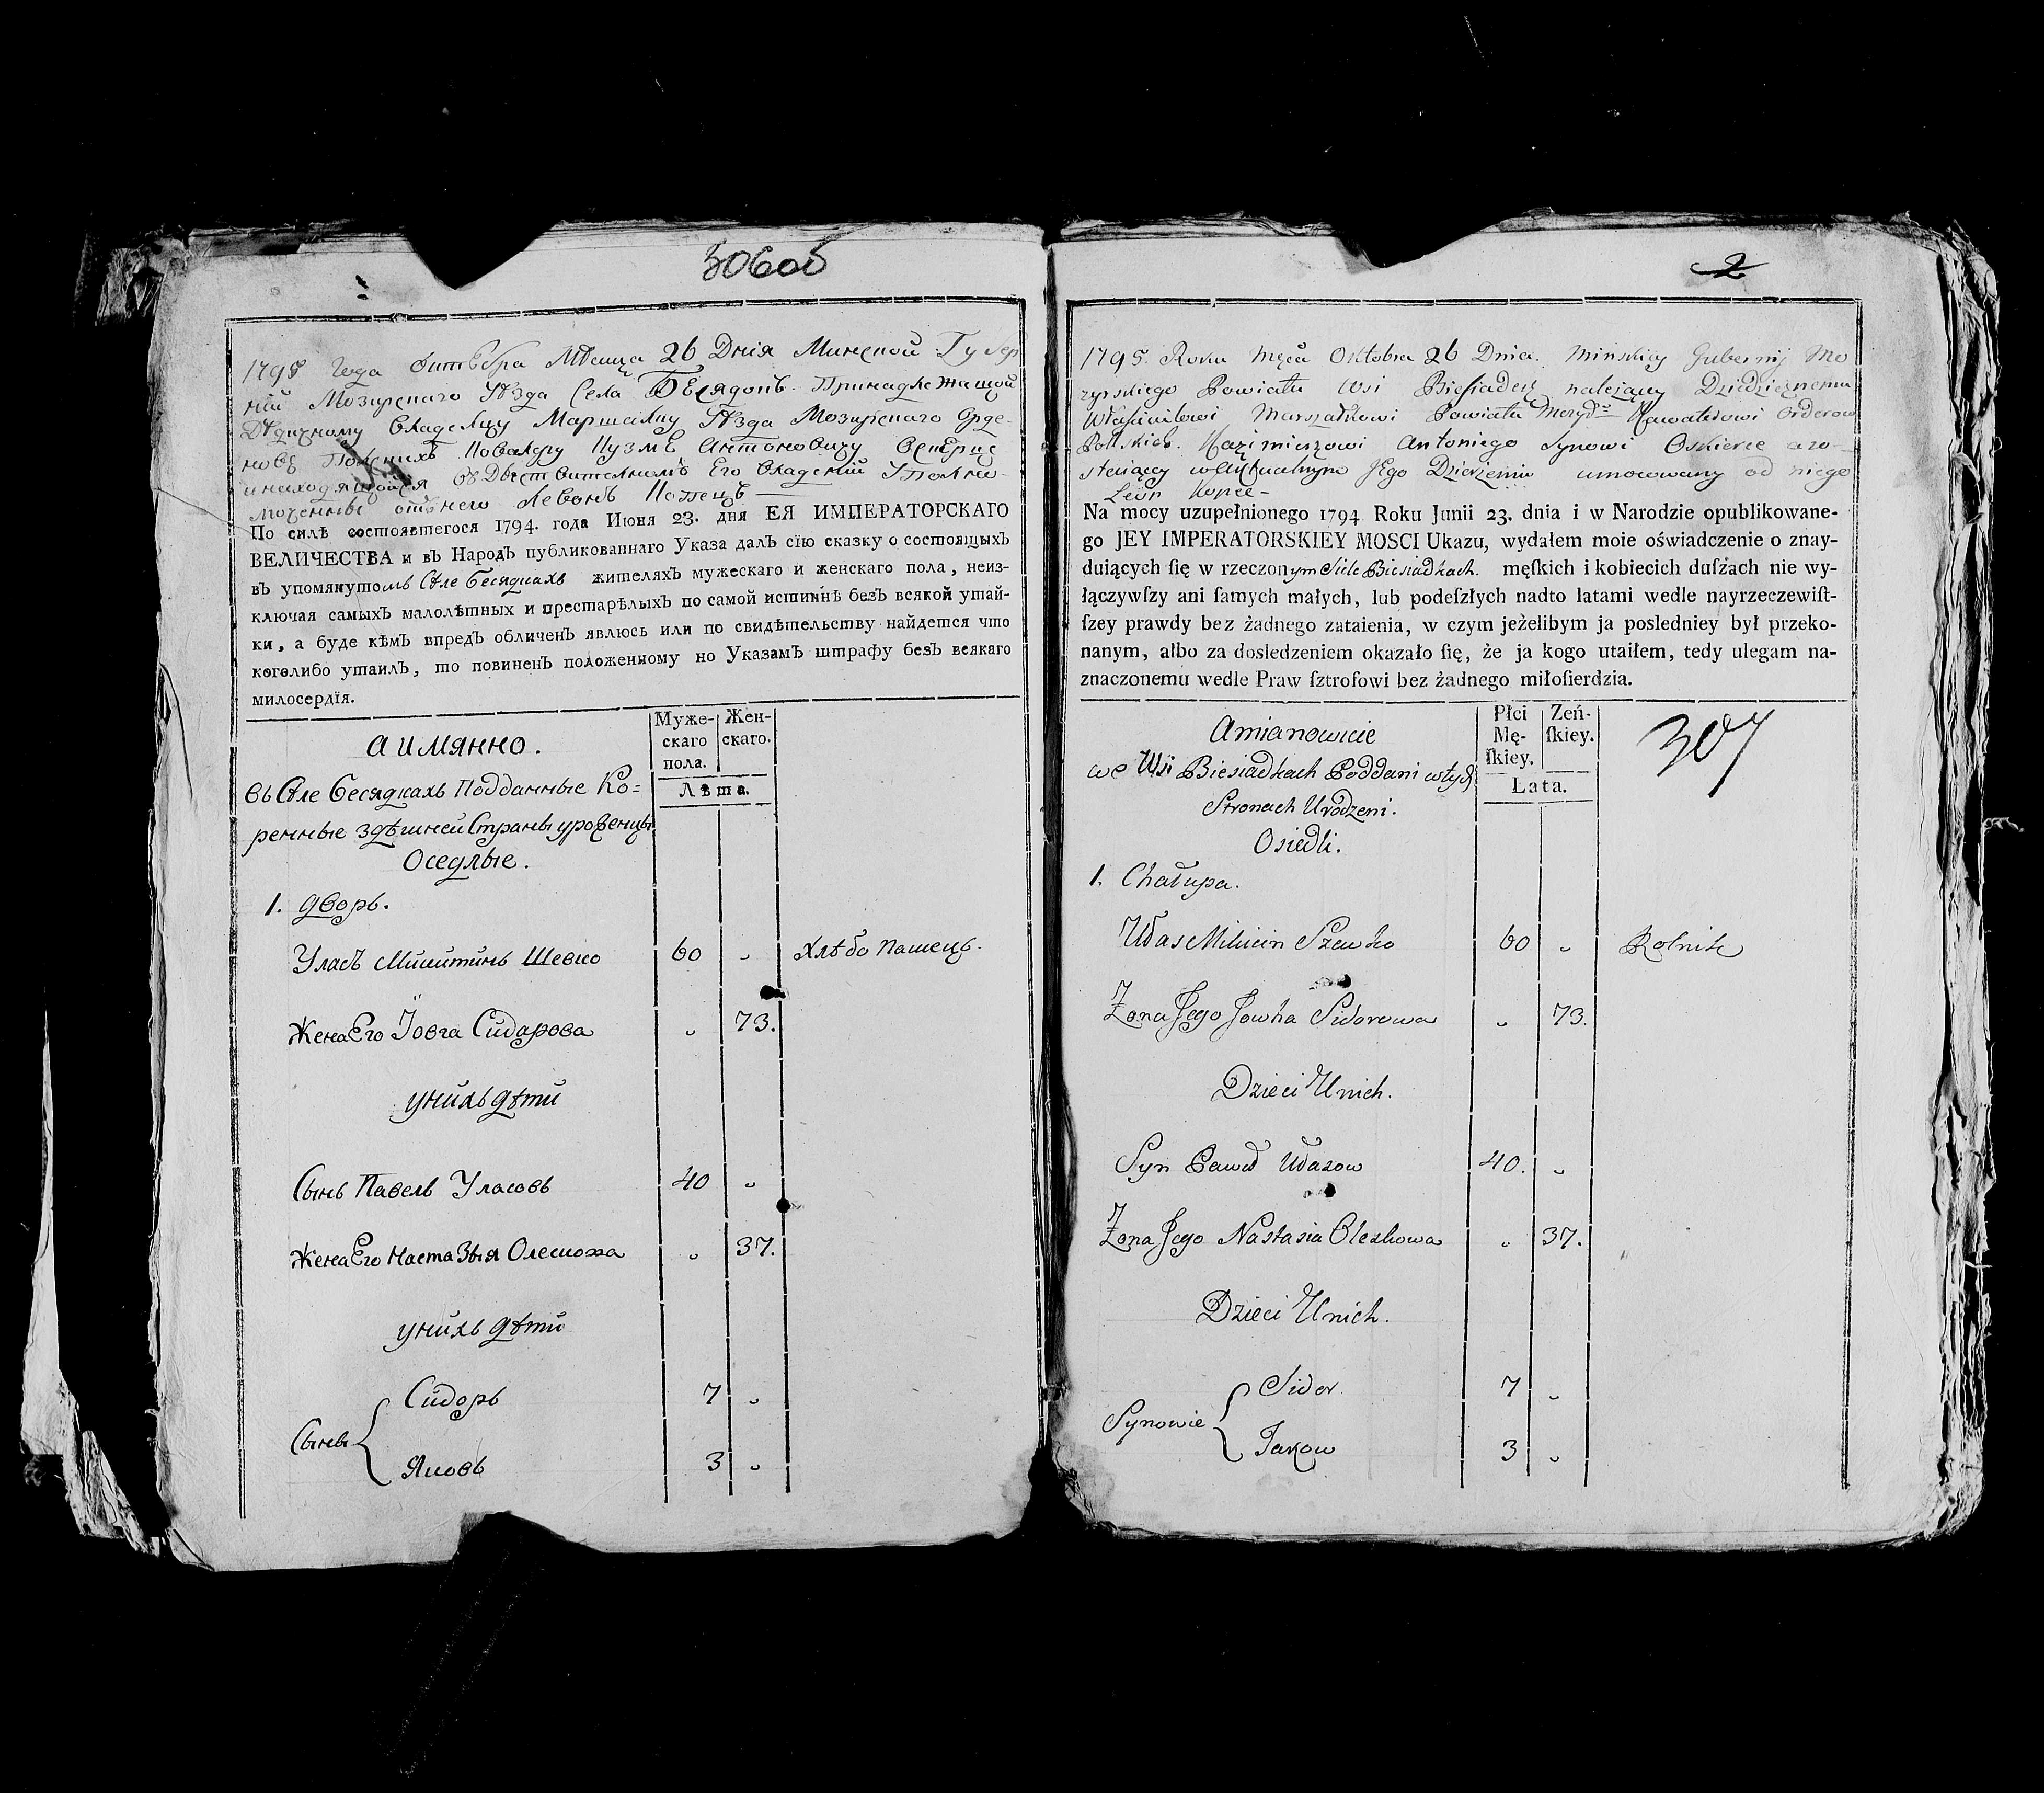 306об
1795 Года Октебра Мѣсяца 26 Днія Минской Губер
ній Мозирскаго Уѣзда Села Бесядокъ Принадлежащой
Дѣдичному Владелцу Маршалку Уѣзда Мозирскаго Орде-
новъ Полскихъ Кавалеру Кузмѣ Антоновичу Оскерце
и находящойся въ Действителномъ Его Владеній Уполно-
моченный отънего Левонъ Копецъ
По силѣ состоявшегося 1794. года Июня 23. дня ЕЯ ИМПЕРАТОРСКАГО
ВЕЛИЧЕСТВА и въ Народъ публикованнаго Указа далъ сїю сказку о состоящыхъ
въ упомянутомъ Селе Бесядкахъ жителяхъ мужескаго и женскаго пола, неиз-
ключая самыхъ малолѣтныхъ и престарѣлыхъ по самой истиннѣ безъ всякой утай-
ки, а буде кѣмъ впредъ обличенъ явлюсь или по свидѣтельству найдется что
коголибо утаилъ, то повиненъ положенному но Указамъ штрафу безъ всякаго
милосердїя.
Муже-
скаго
пола.
Жен-
скаго.
Лѣта.
а имянно.
въ Селе Бесядкахъ Подданные Ко=
ренные здѣшней Страны уроженцы
Оседлые.
1. дворъ.
Уласъ Микитинъ Шевко 60 „ хлѣбо пашецъ.
Жена Его Їовга Сидарова „ 73.
унихъ дѣти
Сынъ Павелъ Уласовъ 40 „
Жена Его Настазыя Олешкова „ 37.
унихъ дѣти
Сидоръ 7 „
Сыны
Яковъ 3 „
2
1795. Roku Męca Oktobra 26 Dnia. Minskiey Gubernij Mo
zyrskiego Powiatu Wsi Biesiadek należącey Dziedzicznemu
Właścicielowi Marszałkowi Powiatu Mozyr. Kawalerowi Orderow
Polskich. Kazimierzowi Antoniego Synowi Oskierce a zo-
stającey w Aktualnym Jego Dzierżeniu umocowany od niego
Leon Kopec -
Na mocy uzupełnionego 1794 Roku Junii 23. dnia i w Narodzie opublikowane-
go JEY IMPERATORSKIEY MOSCI Ukazu, wydałem moie oświadczenie o znay-
duiących ſię w rzeczonym Siele Biesiadkach. męſkich i kobiecich duſzach nie wy-
łączywſzy ani ſamych małych, lub podeſzłych nadto latami wedle nayrzeczewiſt-
ſzey prawdy bez żadnego zataienia, w czym jeżelibym ja posledniey był przeko-
nanym, albo za dosledzeniem okazało ſię, że ja kogo utaiłem, tedy ulegam na-
znaczonemu wedle Praw ſztrofowi bez żadnego miłoſierdzia.
Płci
Mę-
ſkiey.
Zeń-
ſkiey.
Lata.
307
Amianowicie
we Wsi Biesiadkach Poddani w tych
Stronach Urodzeni.
Osiedli.
1. Chałupa.
Ułas Mikicin Szewko 60 „ Rolnik
Żona Jego Jowha Sidorowa „ 73.
Dzieci Unich.
Syn Paweł Ułasow 40. „
Żona Jego Nastasia Oleszkowa „ 37.
Dzieci Unich.
Sidor 7 „
Synowie
Jakow 3 „